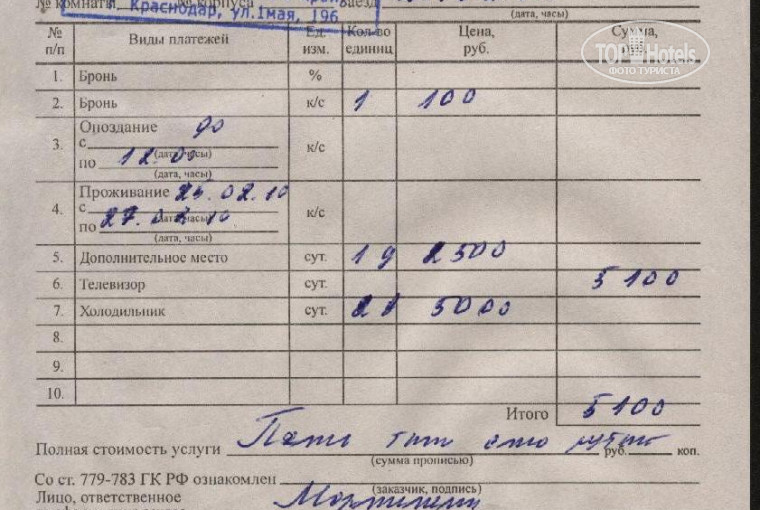 № комнаты № корпуса Заезд
г. Краснодар, ул.1мая, 196
(дата, часы)
№ п/п Виды платежей Ед. изм. Кол-во единиц Цена, руб. Сумма, руб.
TOP Hotels
ФОТО ТУРИСТА
1. Бронь %
2. Бронь к/с 1 100
3. Опоздание до к/с
с
(дата, часы)
по 12.00
(дата, часы)
4. Проживание 25.02.10 к/с
с
(дата, часы)
по 27.02.10
(дата, часы)
5. Дополнительное место сут. 1 2500
6. Телевизор сут. 5100
7. Холодильник сут. 5000
8.
9.
10.
Итого 5100
Полная стоимость услуги Пять тыс сто рублей руб. коп.
(сумма прописью)
Со ст. 779-783 ГК РФ ознакомлен
(заказчик, подпись)
Лицо, ответственное